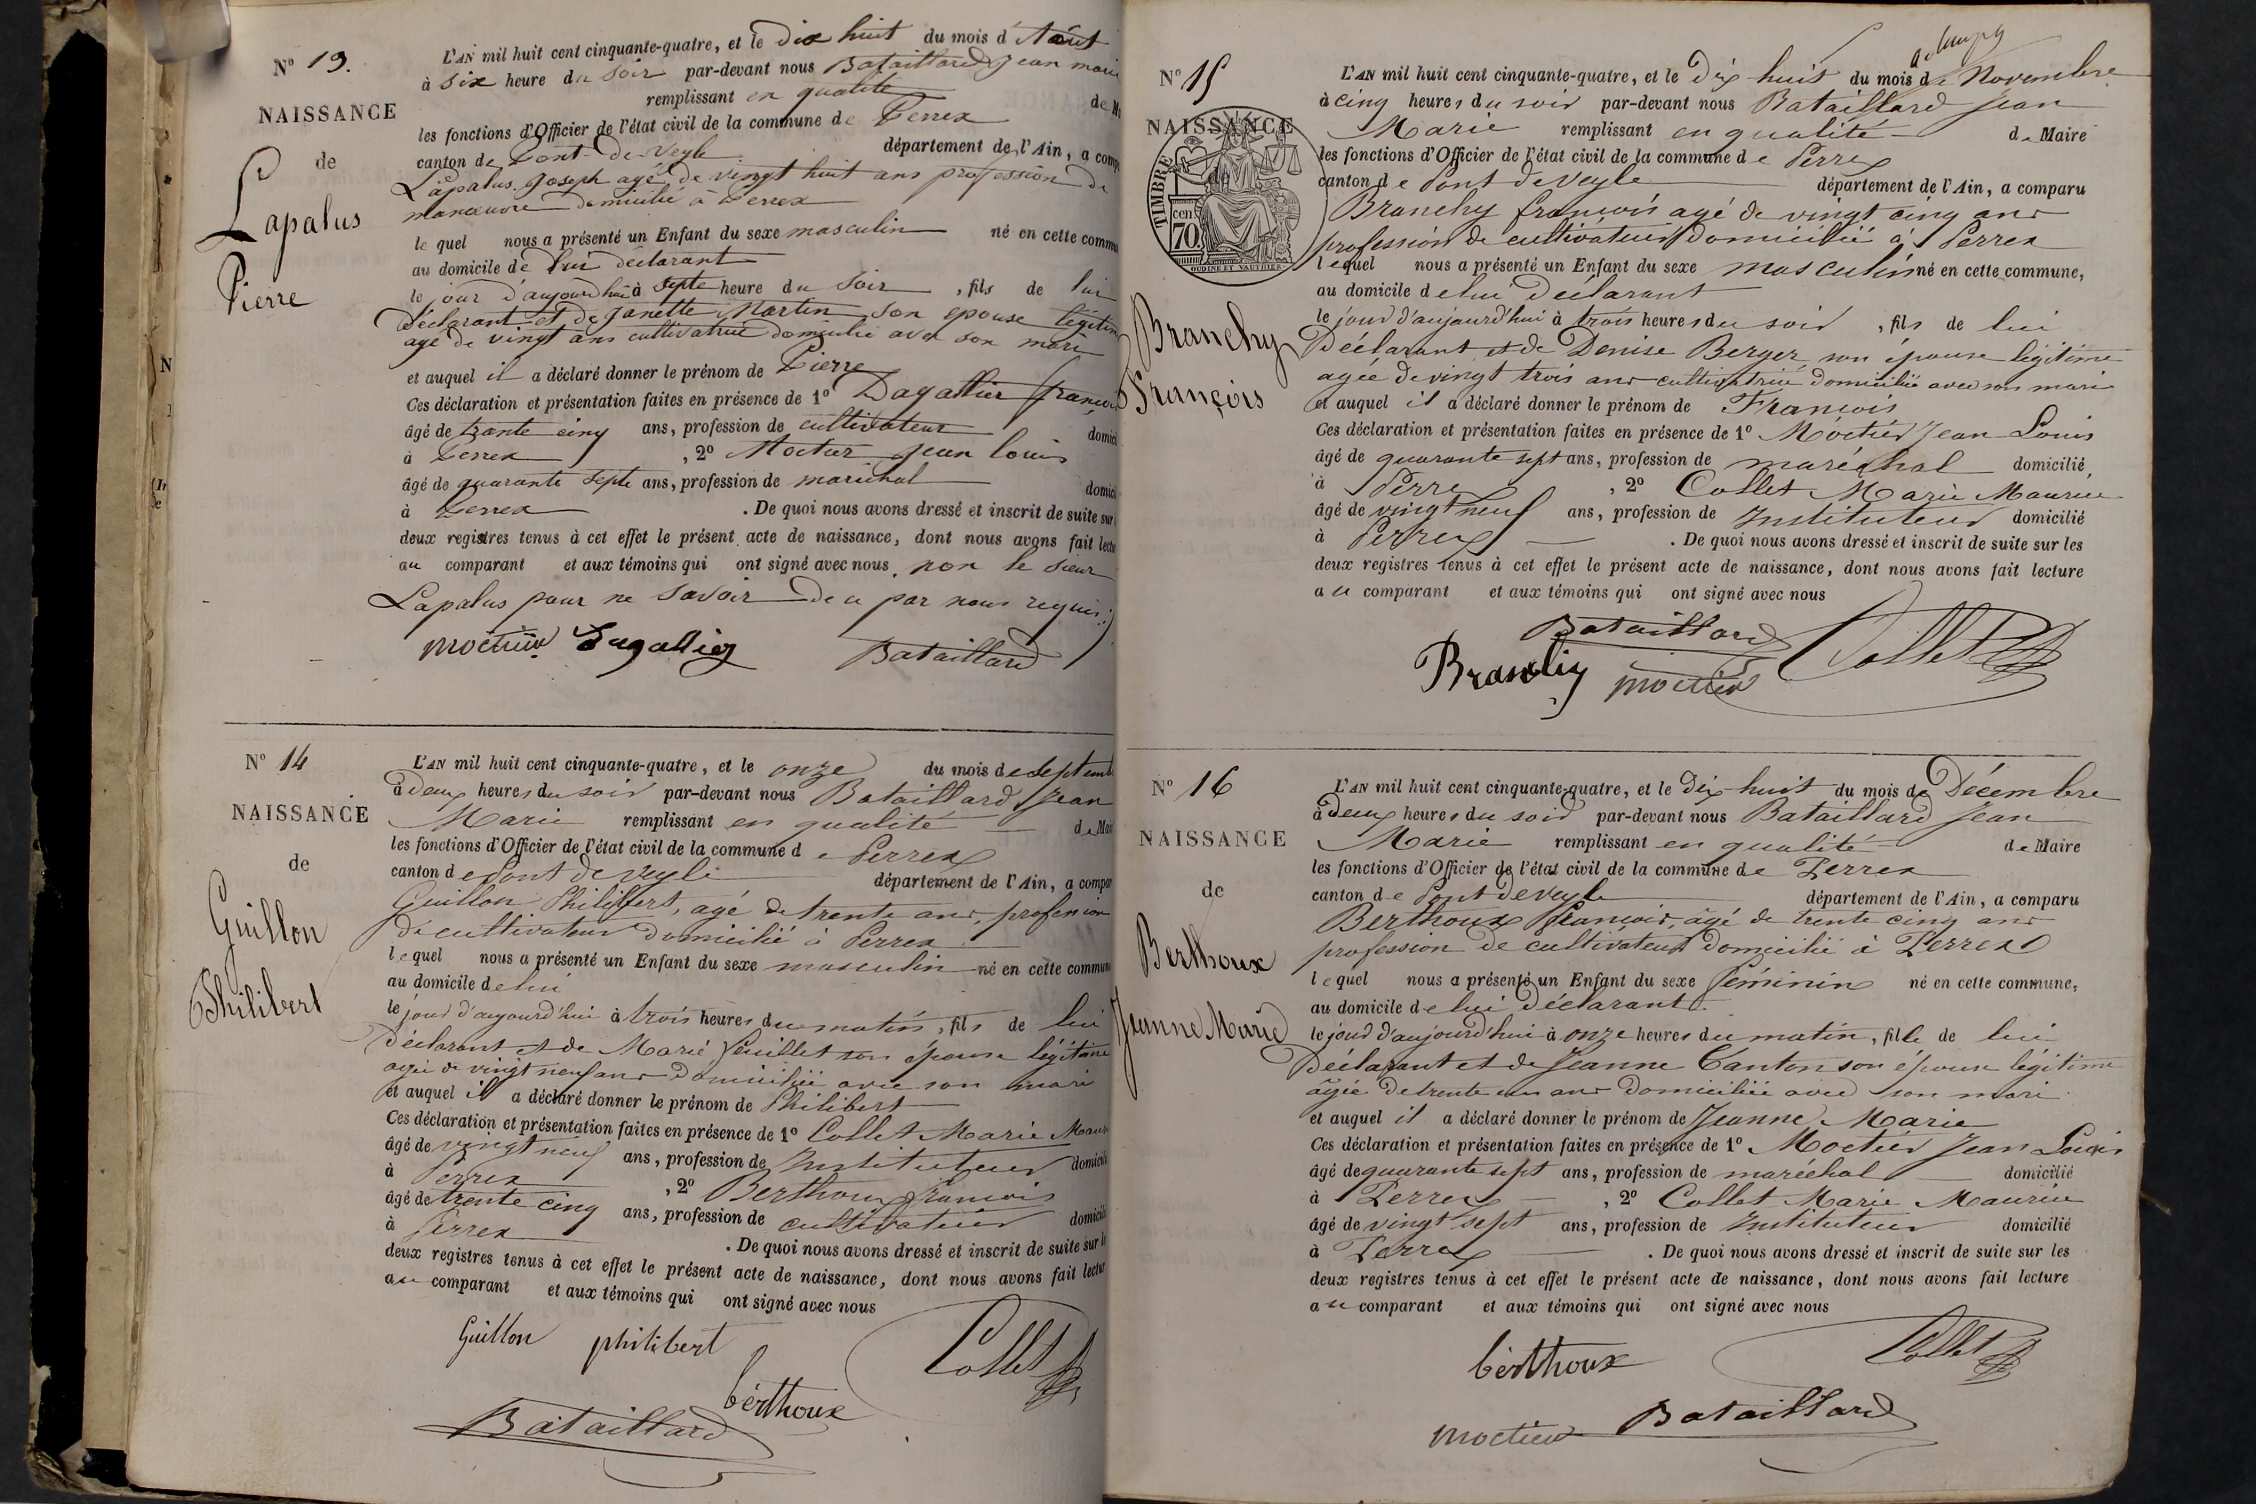 N° 13.
NAISSANCE
de
Lapalus
Pierre
L'AN mil huit cent cinquante-quatre, et le dix huit du mois d'Aout
à six heure du soir par-devant nous Bataillard Jean marie
remplissant en qualité de M
les fonctions d'Officier de l'état civil de la commune de Perrex
canton de Pont-de-Veyle département de l'Ain, a comp
Lapalus Joseph agé de vingt huit ans profession de
manœuvre domicilié à Perrex
le quel nous a présenté un Enfant du sexe masculin né en cette commu
au domicile de lui declarant
le jour d'aujourd'hui à septe heure du soir, fils de lui
déclarant et de Janette Martin son epouse légitim
agé de vingt ans cultivatrice domicilié avec son mari
et auquel il a déclaré donner le prénom de Pierre
Ces déclaration et présentation faites en présence de 1° Dagallier françois
âgé de trante cinq ans, profession de cultivateur domici
à Perrex, 2° Moctier Jean louis
âgé de quarante septe ans, profession de maréchal domici
à Perrex. De quoi nous avons dressé et inscrit de suite sur
deux registres tenus à cet effet le présent acte de naissance, dont nous avons fait lectu
au comparant et aux témoins qui ont signé avec nous, non le sieur
Lapalus pour ne savoir de ce par nous requis.
moctier Dugallier Bataillard
N° 14
NAISSANCE
de
Guillon
Philibert
L'AN mil huit cent cinquante-quatre, et le onze du mois de Septemb
à deux heures du soir par-devant nous Bataillard Jean
Marie remplissant en qualité de Mai
les fonctions d'Officier de l'état civil de la commune de Perrex
canton de Pont de Veyle département de l'Ain, a compar
Guillon Philibert, agé de trente ans, profession
de cultivateur domicilié à Perrex
lequel nous a présenté un Enfant du sexe masculin né en cette commune
au domicile de lui
le jour d'aujourd'hui à trois heures du matin, fils de lui
Déclarant et de Marie feuillet son épouse légitime
agée de vingt neuf ans domiciliée avec son mari
et auquel il a déclaré donner le prénom de Philibert
Ces déclaration et présentation faites en présence de 1° Collet Marie Maur
âgé de vingt neuf ans, profession de Instituteur domicili
à Perrex, 2° Berthoux françois
âgé de trente cinq ans, profession de cultivateur domicili
à Perrex. De quoi nous avons dressé et inscrit de suite sur le
deux registres tenus à cet effet le présent acte de naissance, dont nous avons fait lectur
au comparant et aux témoins qui ont signé avec nous
Guillon philibert Collet
berthoux
Bataillard
N° 15
NAISSANCE
TIMBRE
cen
70
OUDINE ET VAUTHIER
Branchy
François
L'AN mil huit cent cinquante-quatre, et le Dix huit du mois de Novembre
à cinq heures du soir par-devant nous Bataillard Jean
Marie remplissant en qualité de Maire
les fonctions d'Officier de l'état civil de la commune de Perrex
canton de Pont de Veyle département de l'Ain, a comparu
Branchy françois agé de vingt cinq ans
profession de cultivateur domicilié à Perrex
lequel nous a présenté un Enfant du sexe masculin né en cette commune,
au domicile de lui Déclarant
le jour d'aujourd'hui à trois heures du soir, fils de lui
Déclarant et de Denise Berger son épouse légitime
agée de vingt trois ans cultivatrice domiciliée avec son mari
et auquel il a déclaré donner le prénom de François
Ces déclaration et présentation faites en présence de 1° Moctier Jean Louis
âgé de quarante sept ans, profession de maréchal domicilié,
à Perrex, 2° Collet Marie Maurice
âgé de vingt neuf ans, profession de Instituteur domicilié
à Perrex. De quoi nous avons dressé et inscrit de suite sur les
deux registres tenus à cet effet le présent acte de naissance, dont nous avons fait lecture
au comparant et aux témoins qui ont signé avec nous
Bataillard Collet
Branchy moctier
N° 16
NAISSANCE
de
Berthoux
Jeanne Marie
L'AN mil huit cent cinquante-quatre, et le Dix-huit du mois de Décembre
à deux heures du soir par-devant nous Bataillard Jean
Marie remplissant en qualité de Maire
les fonctions d'Officier de l'état civil de la commune de Perrex
canton de Pont de Veyle département de l'Ain, a comparu
Berthoux François, âgé de trente cinq ans
profession de cultivateur domicilié à Perrex
lequel nous a présenté un Enfant du sexe féminin né en cette commune,
au domicile de lui Déclarant
le jour d'aujourd'hui à onze heures du matin, fille de lui
Déclarant et de Jeanne Canton son épouse légitime
âgée de trente un ans domiciliée avec son mari
et auquel il a déclaré donner le prénom de Jeanne Marie
Ces déclaration et présentation faites en présence de 1° Moctier Jean Louis
âgé de quarante sept ans, profession de maréchal domicilié
à Perrex, 2° Collet Marie Maurice
âgé de vingt sept ans, profession de Instituteur domicilié
à Perrex. De quoi nous avons dressé et inscrit de suite sur les
deux registres tenus à cet effet le présent acte de naissance, dont nous avons fait lecture
au comparant et aux témoins qui ont signé avec nous
berthoux Collet
moctier Bataillard